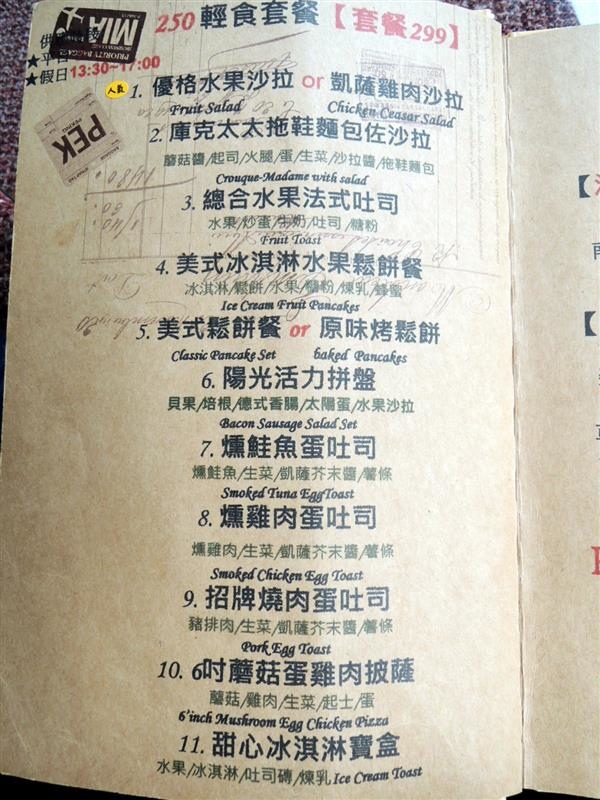 250 輕食套餐【套餐299】
MIA
PRIORITY BAGGAGE
★平
★假日13:30~17:00
人氣
PEK
1. 優格水果沙拉 or 凱薩雞肉沙拉
Fruit Salad Chicken Ceasar Salad
2. 庫克太太拖鞋麵包佐沙拉
蘑菇醬/起司/火腿/蛋/生菜/沙拉醬/拖鞋麵包
Crouque-Madame with salad
3. 總合水果法式吐司
水果/炒蛋/生奶/吐司/糖粉
Fruit Toast
4. 美式冰淇淋水果鬆餅餐
冰淇淋/鬆餅/水果/糖粉/煉乳/蜂蜜
Ice Cream Fruit Pancakes
5. 美式鬆餅餐 or 原味烤鬆餅
Classic Pancake Set baked Pancakes
6. 陽光活力拼盤
貝果/培根/德式香腸/太陽蛋/水果沙拉
Bacon Sausage Salad Set
7. 燻鮭魚蛋吐司
燻鮭魚/生菜/凱薩芥末醬/薯條
Smoked Tuna EggToast
8. 燻雞肉蛋吐司
燻雞肉/生菜/凱薩芥末醬/薯條
Smoked Chicken Egg Toast
9. 招牌燒肉蛋吐司
豬排肉/生菜/凱薩芥末醬/薯條
Pork Egg Toast
10. 6吋蘑菇蛋雞肉披薩
蘑菇/雞肉/生菜/起士/蛋
6'inch Mushroom Egg Chicken Pizza
11. 甜心冰淇淋寶盒
水果/冰淇淋/吐司磚/煉乳 Ice Cream Toast